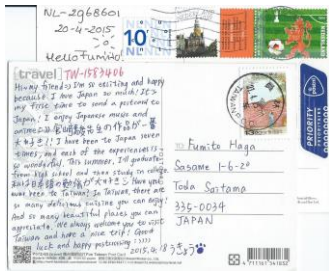 NL-2968601
20-4-2015
Hello Fumiho!
10
NEDERLAND
PRIORITY
[travel] TW-1583406
Hi~ my friend :) I'm so exciting and happy
because I love Japan so much! It's
my first time to send a postcard to
Japan! I enjoy Japanese music and
作品が一番
大好き!! I have been to Japan seven
times, and each of the experiences is
so wonderful. This summer, I'll graduate
from high school and then study in college.
大好き Have you
ever been to Taiwan? In Taiwan, there are
so many delicious cuisine you can enjoy!
And so many beautiful places you can
appreciate. We always welcome you to visit
Taiwan and have a nice trip! Good
luck and happy postcrossing :)
2015.4.18
TO Fumiho Haga
Sasame 1-6-20
Toda Saitama
335-0034
JAPAN